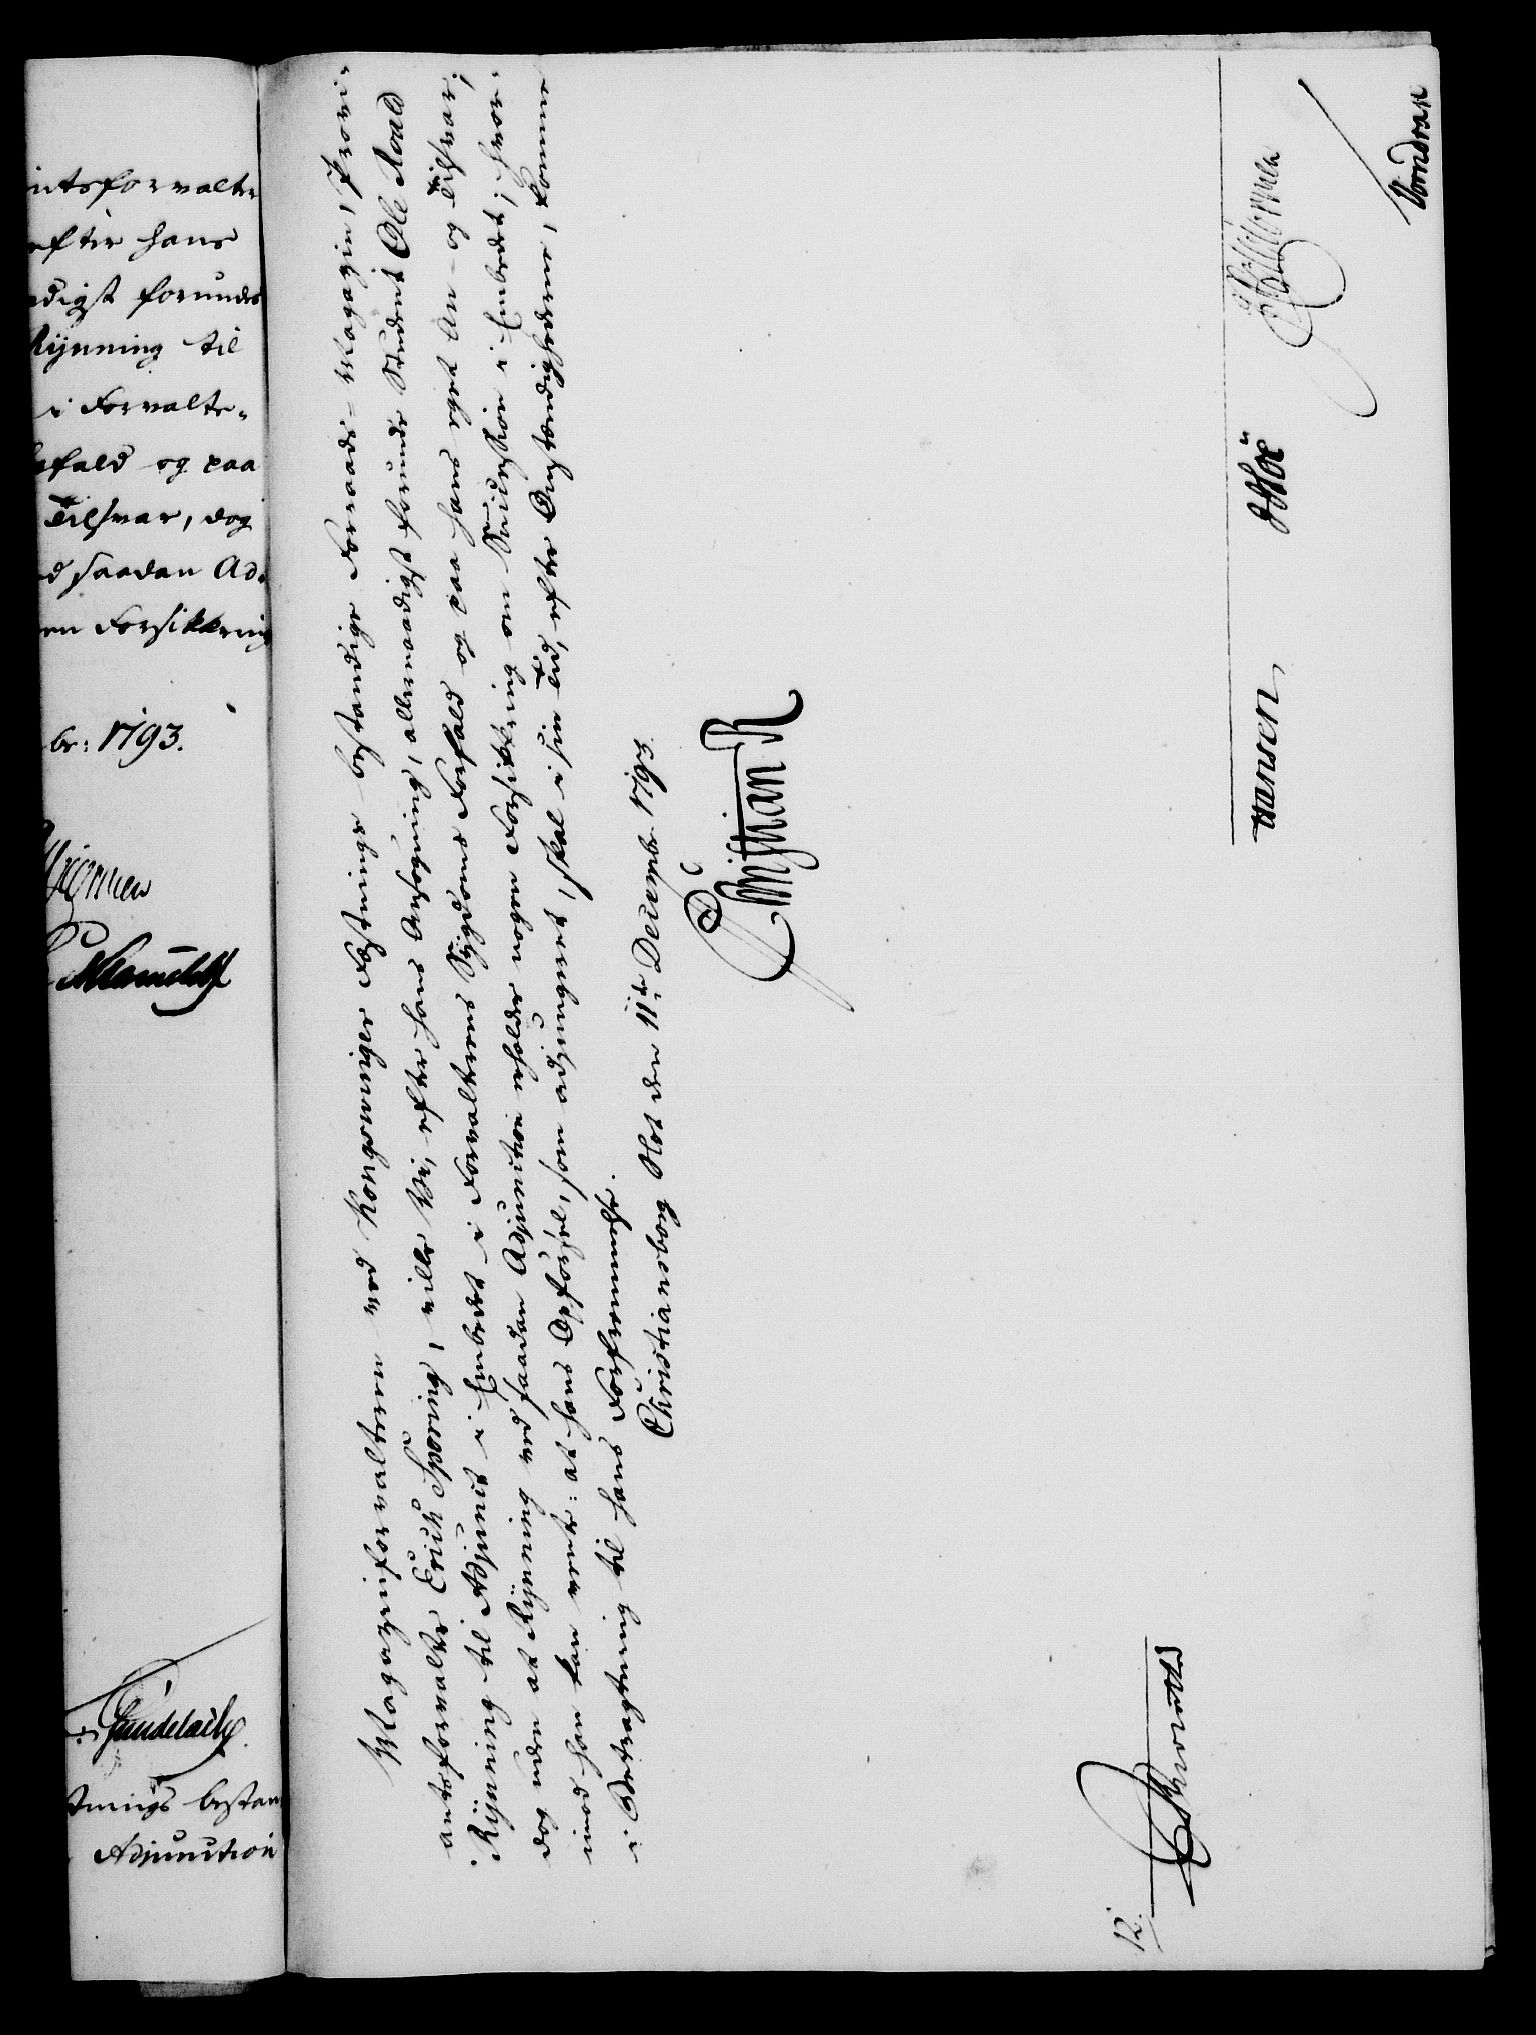 intsforvalter
efter hans
adigst forundes
Rÿnning til
i Forvalte-
Forfald og paa
Tilsvar, dog
ved saadan Ad-
en Forsikkring
br: 1793.
Gundelach
stnings bestan
Adjunction
Magazinforvalteren ved Kongsvinger Festnings bestandige Forraads-Magazin, Provi-
antsforvalter Erich Spøring, ville Vi, efter hans Ansøgning, allernaadigst forunde Student Ole Roald
Rÿnning til Adjunct i Embedet i Forvalterens Sÿgdoms Forfald og paa hans eget An- og Tilsvar,
dog uden at Rÿnning ved saadan Adjunction erholder nogen Forsikkring om Succession i Embedet; hvor-
imod han kan vente: at hans Opførsel, som adjungeret, skal i sin Tid, efter Omstændighederne, komme
i Betragtning til hans Forfremmelse.
Christiansborg Slot den 11te Decembr. 1793.
Christian R
12.
Hansen,
Høÿer
Vondrak